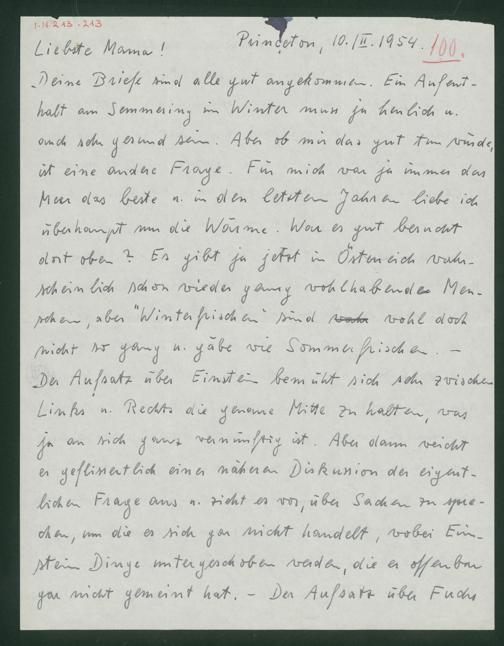 1-H.213-213
Princeton, 10./II. 1954. 100.
Liebste Mama!
Deine Briefe sind alle gut angekommen. Ein Aufent-
halt am Semmering im Winter muss ja herrlich u.
auch sehr gesund sein. Aber ob mir das gut tun würde,
ist eine andere Frage. Für mich war ja immer das
Meer das beste u. in den letzten Jahren liebe ich
überhaupt nur die Wärme. War es gut besucht
dort oben? Es gibt ja jetzt in Österreich wahr-
scheinlich schon wieder genug wohlhabende Men-
schen, aber "Winterfrischen" sind wohl doch
nicht so gang u. gäbe wie Sommerfrischen. –
Der Aufsatz über Einstein bemüht sich sehr zwischen
Links u. Rechts die genaue Mitte zu halten, was
ja an sich ganz vernünftig ist. Aber dann weicht
er geflissentlich einer näheren Diskussion der eigent-
lichen Frage aus u. zieht es vor, über Sachen zu spre-
chen, um die es sich gar nicht handelt, wobei Ein-
stein Dinge untergeschoben werden, die er offenbar
gar nicht gemeint hat. – Der Aufsatz über Fuchs